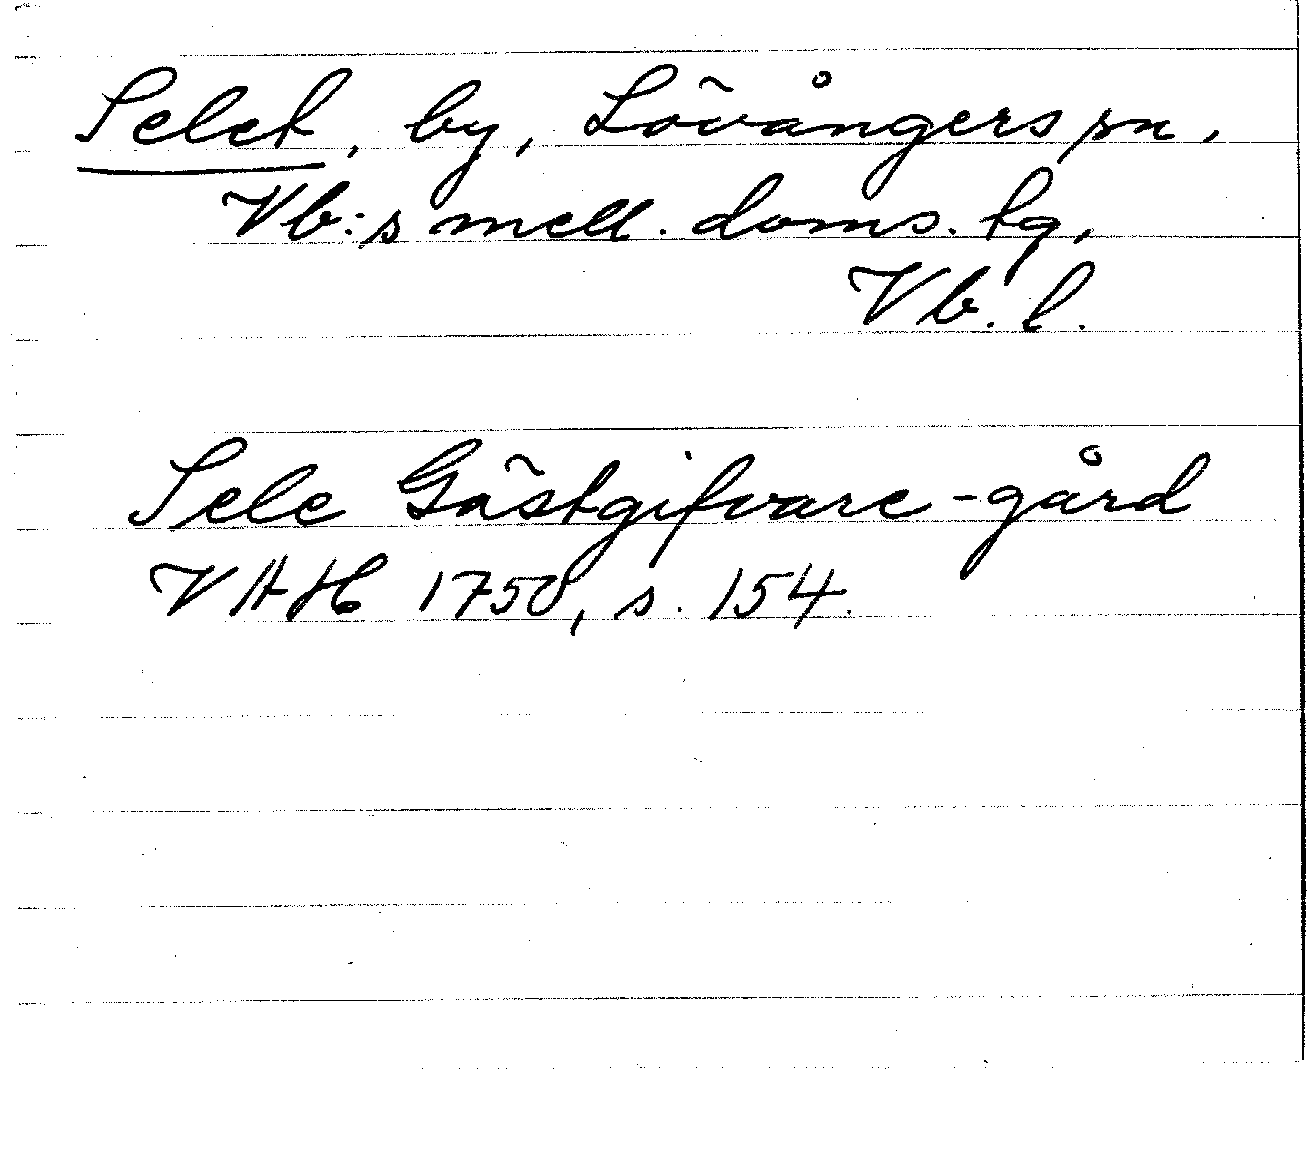 Selet, by, Lövångers sn,
Vb:s mell. doms. tg,
Vb. l.
Sele Gästgifvare-gård
VAH 1750, s. 154.